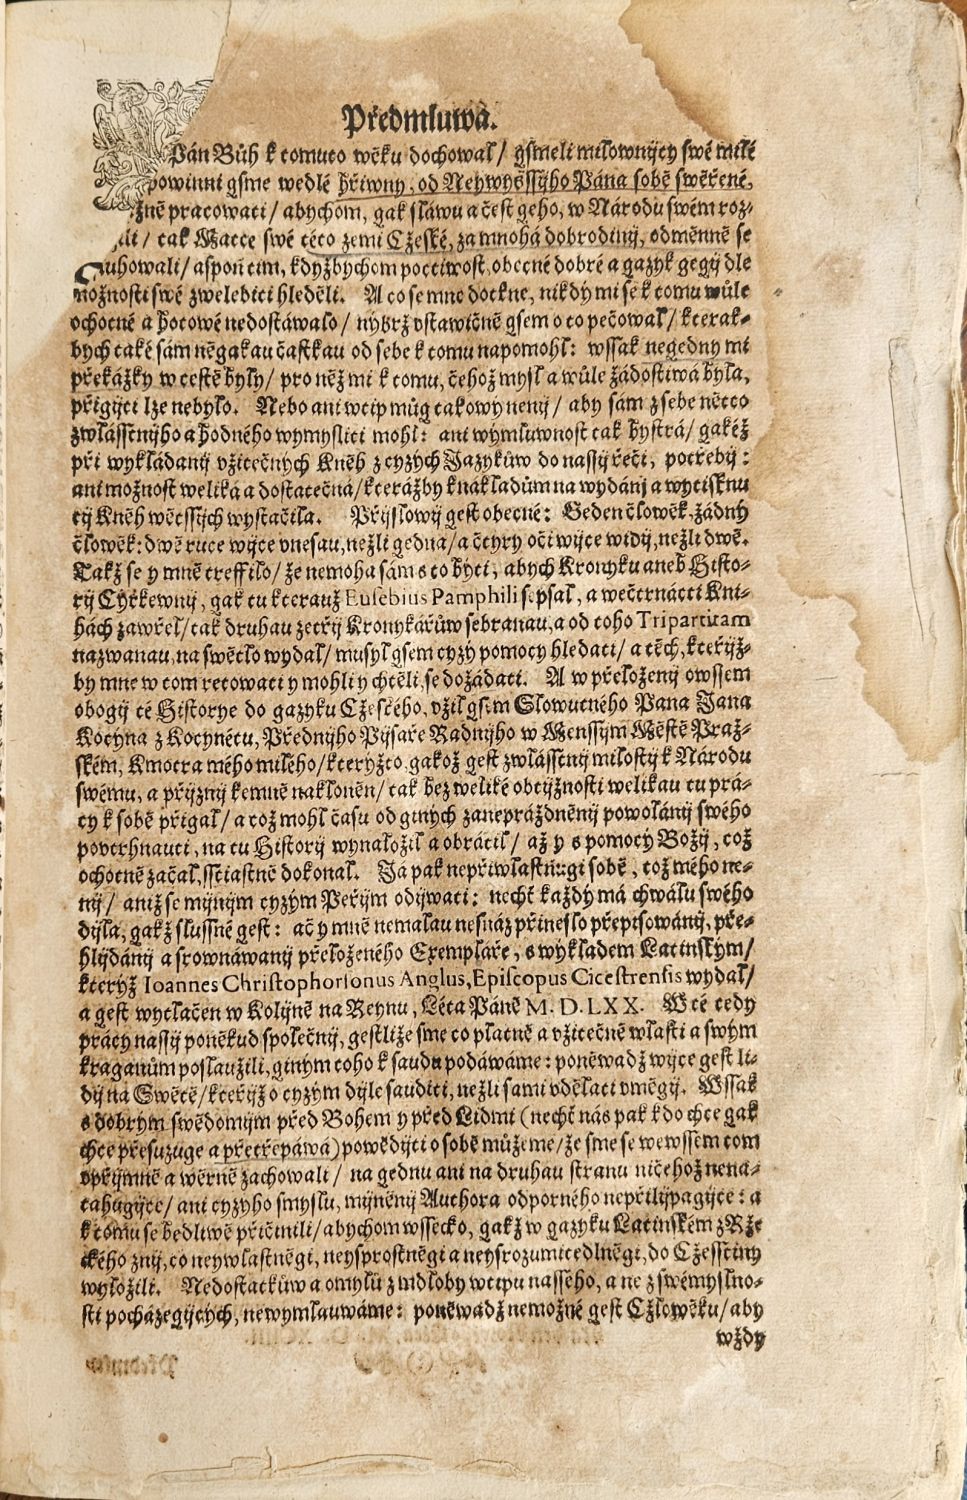 Předmluwa.
Pán Bůh k tomuto wěku dochowal/ gsmeli milownijcy swé milé
powinni gsme wedlé hřiwny, od Neywyššjjho Pána sobě swěřené,
žně pracowati/ abychom, gak sláwu a čest geho, w Národu swém roz-
tak Matce swé této zemi Cžeské, za mnohá dobrodinij, odměnně se
chowali/ aspoň tim, kdyžbychom poctiwost, obecné dobré a gazyk gegij dle
možnosti swé zwelebiti hleděli. A co se mne dotkne, nikdy mi se k tomu wůle
ochotné a hotowé nedostáwalo/ nýbrž vstawičně gsem o to pečowal/ kterak-
bych také sám něgakau částkau od sebe k tomu napomohl: wssak negedny mi
překážky w cestě byly/ pro něž mi k tomu, čehož mysl a wůle žádostiwá byla,
přigijti lze nebylo. Nebo ani wtip můg takowy nenij/ aby sám z sebe něčo
zwlásstnijho a hodného wymysliti mohl: ani wýmluwnost tak bystrá/ gakéž
při wykládanij vžitečných Kněh z cyzých Jazyků w do nassij řeči, potřebij:
ani možnost weliká a dostatečná/ kterážby k nákladům na wydánj a wytisknu
tij Kněh wětssijch wystačila. Přijslowij gest obecné: Geden člowěk, žádný
člowěk: dwě ruce wijce vnesau, nežli gedna/ a čtyry oči wijce widij, nežli dwě.
Takž se y mně treffilo/ že nemoha sám s to býti, abych Kronyku aneb Histo-
rij Cyrkewnij, gak tu kterauž Eusebius Pamphili sepsal, a w čtrnácti Kni-
hách zawřel/ tak druhau ze třij Kronykářůw sebranau, a od toho Tripartitam
nazwanau, na swětlo wydal/ musyl gsem cyzý pomocy hledati/ a těch, kteřijž-
by mne w tom retowati y mohli y chtěli, se dožádati. A w přeloženij owssem
obogij té Historye do gazyku Cžeského, vžil gsem Slowutného Pana Jana
Kocyna z Kocynétu, Přednijho Pijsaře Radnijho w Menssým Městě Praž-
ském, Kmotra mého milého/ kterýžto, gakož gest zwlásstnij milostij k Národu
swému, a přijznij ke mně nakloněn/ tak bez weliké obtijžnosti welikau tu prá-
cy k sobě přigal/ a což mohl času od giných zanepráždněnij powolánij swého
povtrhnauti, na tu Historij wynaložil a obrátil/ až y s pomocý Božij, což
ochotně začal, sstiastně dokonal. Já pak nepřiwlastňugi sobě, což mého ne-
nij/ aniž se mijnijm cyzým Peřijm odijwati: nechť každý má chwálu swého
dijla, gakž slussné gest: ač y mně nemalau nesnáz přineslo přepisowánij, pře-
hlijdánij a srownáwanij přeloženého Exempláře, s wýkladem Latinským/
kterýž Ioannes Christophorsonus Anglus, Episcopus Cicestrensis wydal/
a gest wytlačen w Kolijně na Reynu, Léta Páně M. D. LXX. W té tedy
prácy nassij poněkud společnij, gestliže sme co platně a vžitečně wlasti a swým
kraganům poslaužili, giným toho k saudu podáwáme: poněwadž wijce gest li-
dij na Swětě/ kteřijž o cyzým dijle saudití, nežli sami vdělati vměgij. Wssak
s dobrým swědomijm před Bohem y před Lidmi (nechť nás pak kdo chce gak
chce přesuzuge a přetřepáwá) powědijti o sobě můžeme/ že sme se we wssem tom
vpřijmně a wěrně zachowali/ na gednu ani na druhau stranu ničehož nena-
tahugijce/ ani cyzyho smyslu, mijněnij Authora odporného nepřilijpagijce: a
k tomu se bedliwě přičinili/ abychom wssecko, gakž w gazyku Latinském z Rže
ckého znij, co neywlastněgi, neysprostněgi a neysrozumitedlněgi, do Cžesstiny
wyložili. Nedostatkůw a omylů z mdloby wtipu nasseho, a ne z swémyslno-
sti pocházegijcých, newymlauwáme: poněwadž nemožné gest Cžlowěku/ aby
wždy